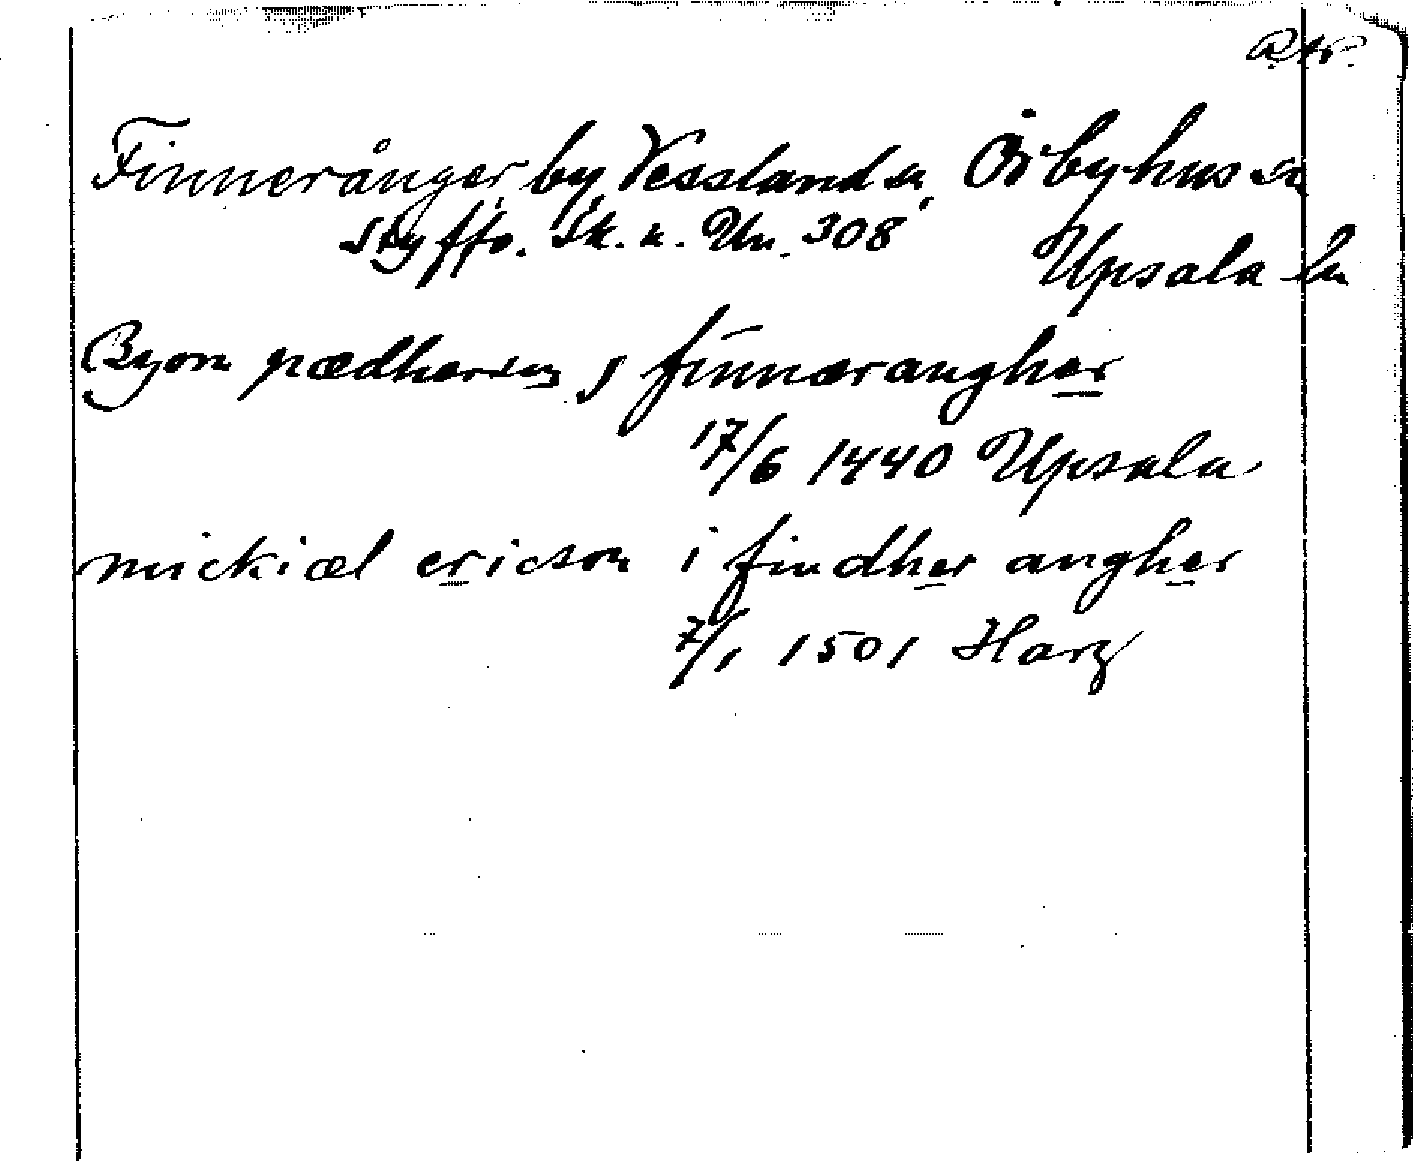 Finneränger by, Vessland sn, Örbyhus sn
Styffe. Sk. u. Un. 308
Upsala ln
Byorn pædherson j finnærangher
17/6 1440 Upsala
mickiæl ericson i findher angher
7/1 1501 Harg